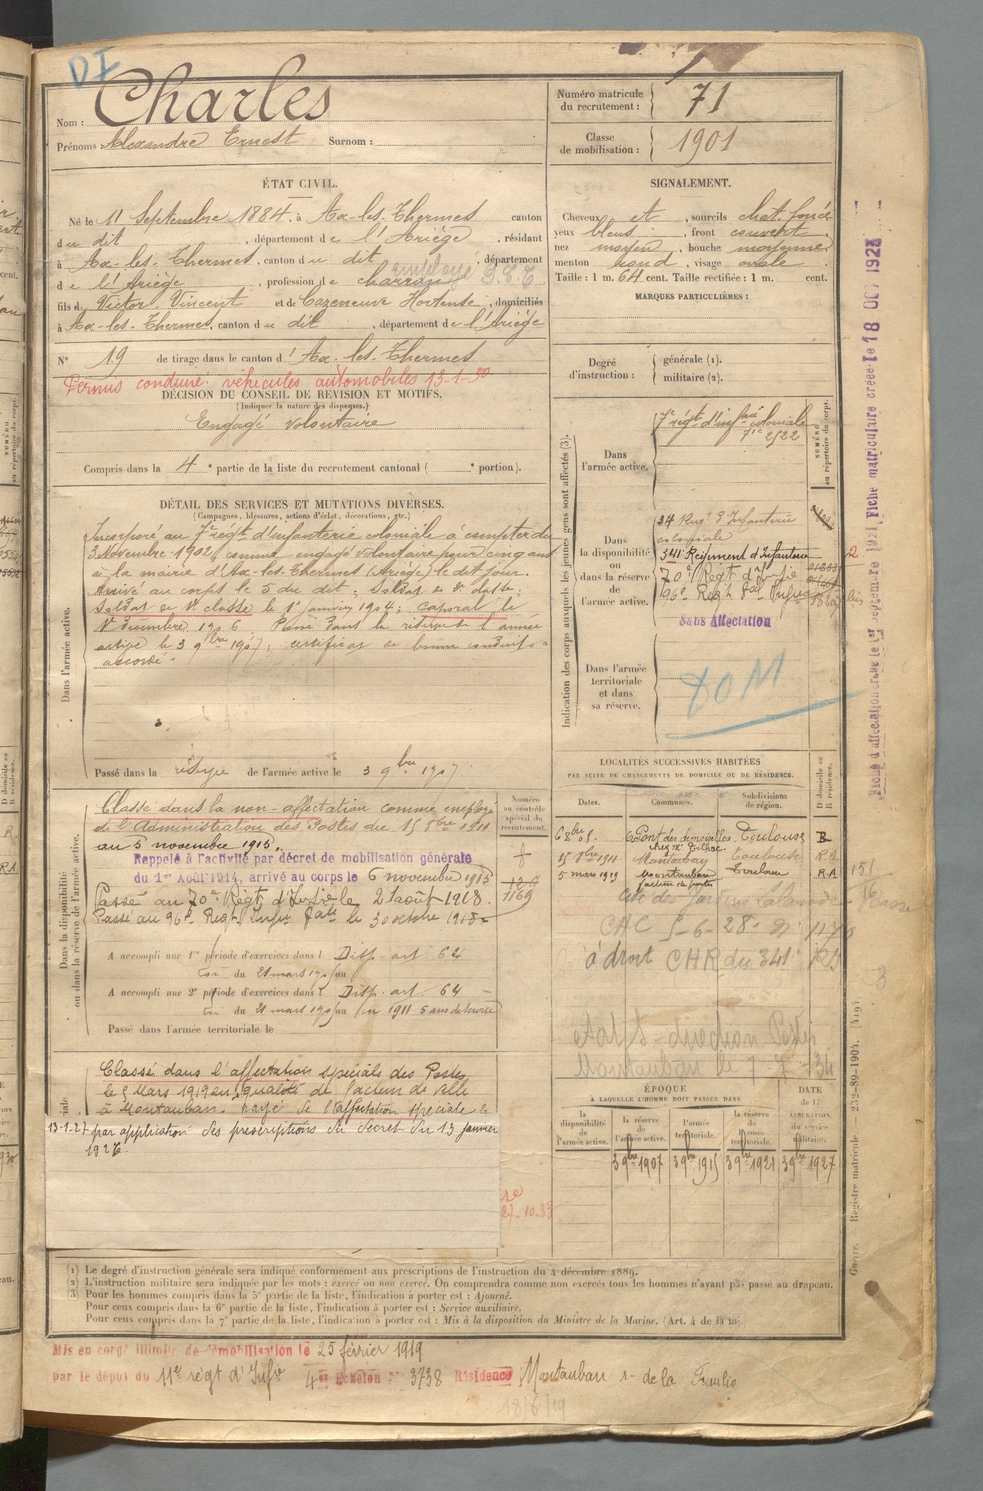 DI
Nom : Charles
Prénoms : Alexandre Ernest Surnom :
Numéro matricule du recrutement : 71
Classe de mobilisation : 1901
ÉTAT CIVIL.
Né le 11 Septembre 1884, à Ax-les-Thermes canton
du dit, département de l'Ariège, résidant
à Ax-les-Thermes, canton du dit, département
de l'Ariège, profession de charron employé
fils de Victor Vincent et de Cazeneuve Hortense, domiciliés
à Ax-les-Thermes, canton du dit, département de l'Ariège
N° 19 de tirage dans le canton d'Ax-les-Thermes
Permis conduire véhicules automobiles 13-1-30
DÉCISION DU CONSEIL DE REVISION ET MOTIFS.
(Indiquer la nature des dispenses.)
Engagé volontaire
Compris dans la 4e partie de la liste du recrutement cantonal ( e portion).
SIGNALEMENT.
Cheveux et, sourcils chat. foncé
yeux bleus, front couvert
nez moyen, bouche moyenne
menton rond, visage ovale
Taille : 1 m. 64 cent. Taille rectifiée : 1 m. cent.
MARQUES PARTICULIÈRES :
Degré d'instruction : générale (1).
militaire (2).
DÉTAIL DES SERVICES ET MUTATIONS DIVERSES.
(Campagnes, blessures, actions d'éclat, décorations, etc.)
Dans l'armée active.
Incorporé au 7e régt d'infanterie coloniale à compter du
3 Novembre 1902, comme engagé volontaire pour cinq ans
à la mairie d'Ax-les-Thermes (Ariège) le dit jour.
Arrivé au corps le 5 du dit, Soldat de 2e classe,
Soldat de 1e classe le 1er janvier 1904; caporal le
1er Décembre 1906. Passé dans la réserve de l'armée
active le 3 9bre 1907; certificat de bonne conduite
accordé
Passé dans la réserve de l'armée active le 3 9bre 1907
Indication des corps auxquels les jeunes gens sont affectés (3).
NUMÉRO au répertoire du corps.
Dans l'armée active.
7e régt d'infrie coloniale
2522
Dans la disponibilité ou dans la réserve de l'armée active.
24 Regt d'Infanterie
coloniale
341 Régiment d'Infanterie
70e Régt d'Infrie
96e Régt
Sans Affectation
Dans l'armée territoriale et dans sa réserve.
DOM
Fiche d'affectation créée le 1er septembre 1921, Fiche matriculaire créée le 18 OCT 1923
Dans la disponibilité ou dans la réserve de l'armée active.
Numéro au contrôle spécial du recrutement.
Classé dans la non-affectation comme employé
de l'Administration des Postes du 15 8bre 1911
au 5 novembre 1915.
Rappelé à l'activité par décret de mobilisation générale
du 1er Août 1914, arrivé au corps le 6 novembre 1915
Passé au 70e Régt d'Infrie le 2 août 1918.
Passé au 96e Régt Infrie le 30 octobre 1918
1169
A accompli une 1re période d'exercices dans l Disp. art 64
Loi du 21 mars 1905 au
A accompli une 2e période d'exercices dans l Disp. art. 64
Loi du 21 mars 1905 au (en 1911 5 ans de service)
Passé dans l'armée territoriale le
Classé dans l'affectation spéciale des Postes
le 5 Mars 1919 en qualité de facteur de ville
à Montauban. Rayé de l'affectation spéciale le
13-1-27 par application des prescriptions du décret du 13 janvier
1927.
27-10-33
LOCALITÉS SUCCESSIVES HABITÉES
PAR SUITE DE CHANGEMENTS DE DOMICILE OU DE RÉSIDENCE.
Dates. Communes. Subdivisions de région. D domicile ou R résidence.
6 Pont des demoiselles Toulouse R
15 8bre 1911 Montauban Toulouse R.A
5 mars 1919 Montauban Toulouse R.A
facteur des postes
CAC 5-6-28
à droit CHR du 341e
Montauban le 7-7-34
ÉPOQUE
À LAQUELLE L'HOMME DOIT PASSER DANS
la disponibilité de l'armée active. la réserve de l'armée active. l'armée territoriale. la réserve de l'armée territoriale. DATE de la LIBÉRATION du service militaire.
3 9bre 1907 3 9bre 1915 3 9bre 1921 3 9bre 1927
Guerre. Registre matricule. 232-89-1904.
(1) Le degré d'instruction générale sera indiqué conformément aux prescriptions de l'instruction du 4 décembre 1889.
(2) L'instruction militaire sera indiquée par les mots : exercé ou non exercé. On comprendra comme non exercés tous les hommes n'ayant pas passé au drapeau.
(3) Pour les hommes compris dans la 5e partie de la liste, l'indication à porter est : Ajourné.
Pour ceux compris dans la 6e partie de la liste, l'indication à porter est : Service auxiliaire.
Pour ceux compris dans la 7e partie de la liste, l'indication à porter est : Mis à la disposition du Ministre de la Marine. (Art. 4 de la loi).
Mis en congé illimité de démobilisation le 25 février 1919
par le dépôt du 11e régt d'Infie 4e Echelon N° 3738 Résidence Montauban r. de la
18/6/19